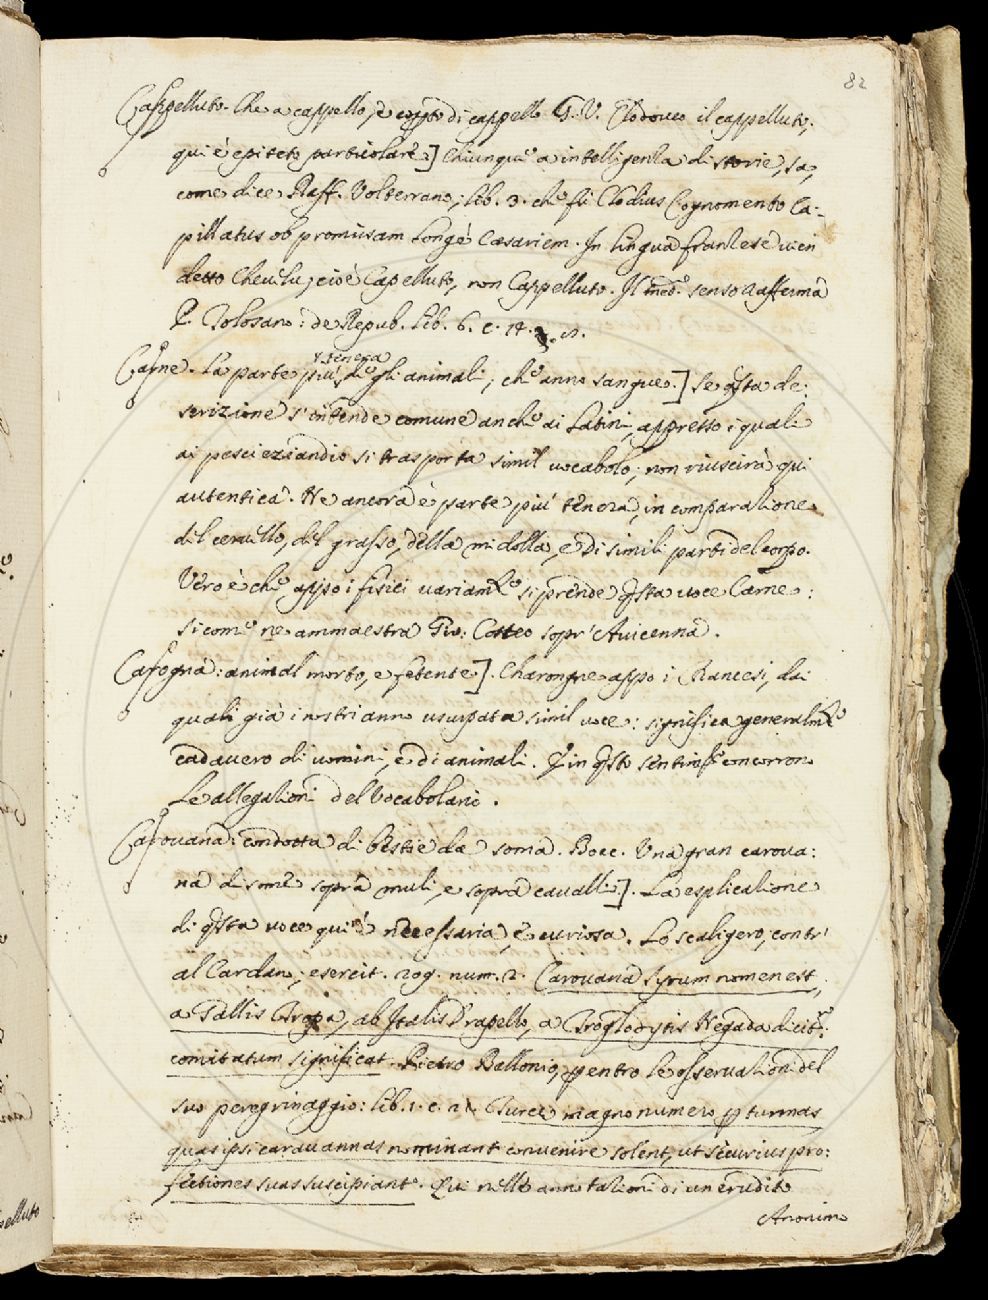 82
Cappelluto. Che a cappello, è copto di cappello. G. V. Clodoveo il cappelluto;
qui è epiteto particolare.] Chiunque a intelligenza di storie, sa,
come dice Raff. Volterrano; lib. 3. che fù Clodius Cognomento Ca-
pillatus ob promissam longè Caesariem. In lingua franzese vien
detto Cheulu; cioè Capelluto, non Cappelluto. Il med.o senso afferma
P. Tolosano: de Repub. lib. 6. c. 14. 3. n.
Carne. La parte più tenera de gli animali; che anno sangue.] Se qsta de:
scrizione s'intende comune anche ai Latini, appresso i quali
ai pesci eziandio si trasporta simil vocabolo; non riuscirà qui
autentica. Ne ancora è parte più tenera, in comparazione
del cervello, del grasso, della midolla, e di simili parti del corpo.
Vero è che appo i fisici variamte si prende qsta voce Carne:
sicome ne ammaestra Gio: Costeo sopr'Avicenna.
Carogna: animal morto, e fetente]. Charongne appo i Francesi, dai
quali già i nostri anno usurpata simil voce: significa generalmte
cadavero di uomini, e di animali. E in qsto sentimto concorrono
le allegazioni del Vocabolario.
Carovana: condotta di bestie da soma. Bocc. Una gran carova:
na di some sopra muli, e sopra cavalli]. La esplicazione
di qsta voce qui è necessaria, e curiosa. Lo scaligero, contr'
al Cardano; esercit. 209. num. 2. Carouana Syrum nomen est,
a Gallis Tropa, ab Italis Drapello, a Troglodytis Negada dicitr:
comitatum significat. Pietro Bellonio, entro le osservazioni del
suo peregrinaggio: lib. 1. c. 21. Turcae magno numero p turmas
quas ipsi carauannas nominant convenire solent, ut securius pro:
fectiones suas suscipiant. Qui nelle annotazioni di un erudito
Anonimo
pelluto